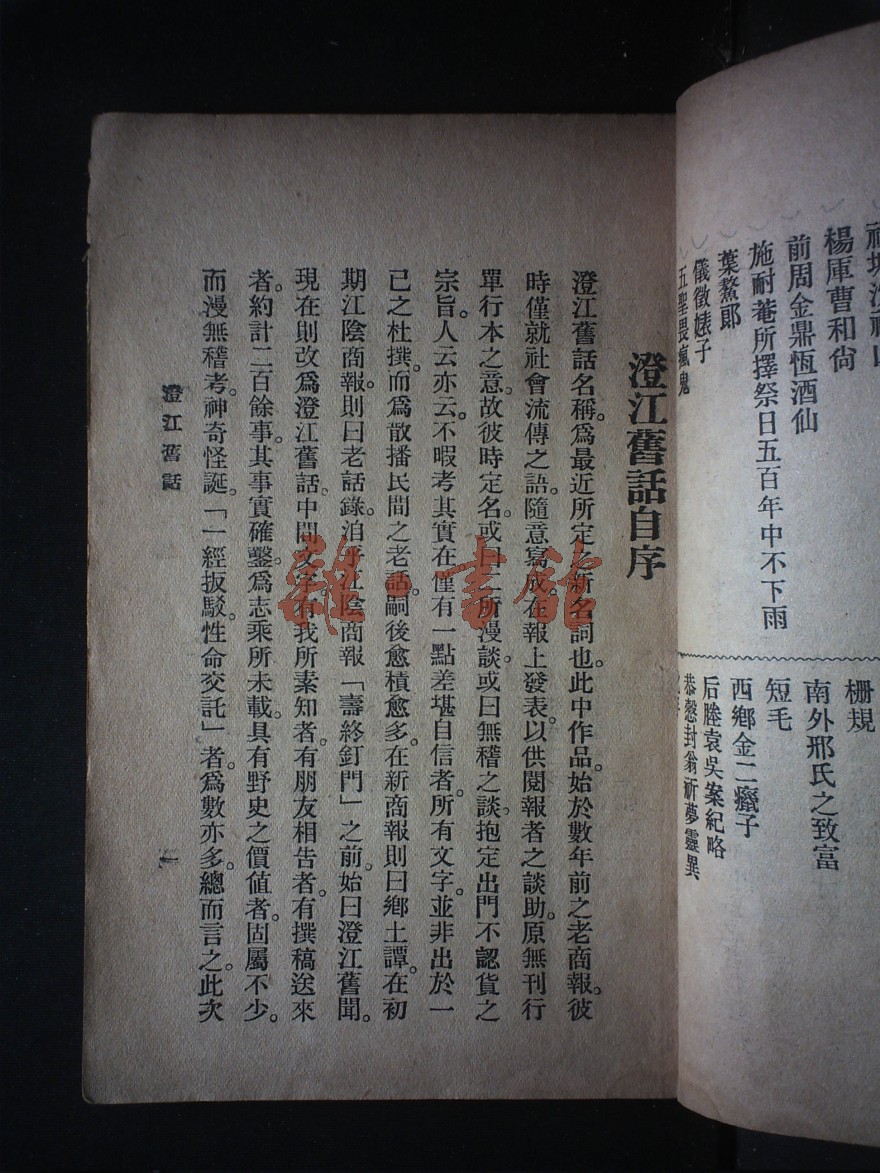 楊厙曹和尙
前周金鼎恆酒仙
施耐菴所擇祭日五百年中不下雨
葉鰲郞
儀徵婊子
五聖畏瘋鬼
柵規
南外邢氏之致富
短毛
西鄕金二癥子
后塍袁吳案紀略
恭慤封翁祈夢靈異
澄江舊話自序
澄江舊話名稱。爲最近所定之新名詞也。此中作品。始於數年前之老商報。彼
時僅就社會流傳之語。隨意寫成。在報上發表。以供閱報者之談助。原無刊行
單行本之意。故彼時定名。或曰二所漫談。或曰無稽之談。抱定出門不認貨之
宗旨。人云亦云。不暇考其實在。僅有一點差堪自信者。所有文字。並非出於一
己之杜撰。而爲散播民間之老話。嗣後愈積愈多。在新商報則曰鄕土譚。在初
期江陰商報。則曰老話錄。洎乎江陰商報「壽終釘門」之前。始曰澄江舊聞。
現在則改爲澄江舊話。中間文字。有我所素知者。有朋友相告者。有撰稿送來
者。約計二百餘事。其事實確鑿。爲志乘所未載。具有野史之價値者。固屬不少。
而漫無稽考。神奇怪誕。「一經扳駁。性命交託」者。爲數亦多。總而言之。此次
澄江舊話
一
雜·書館